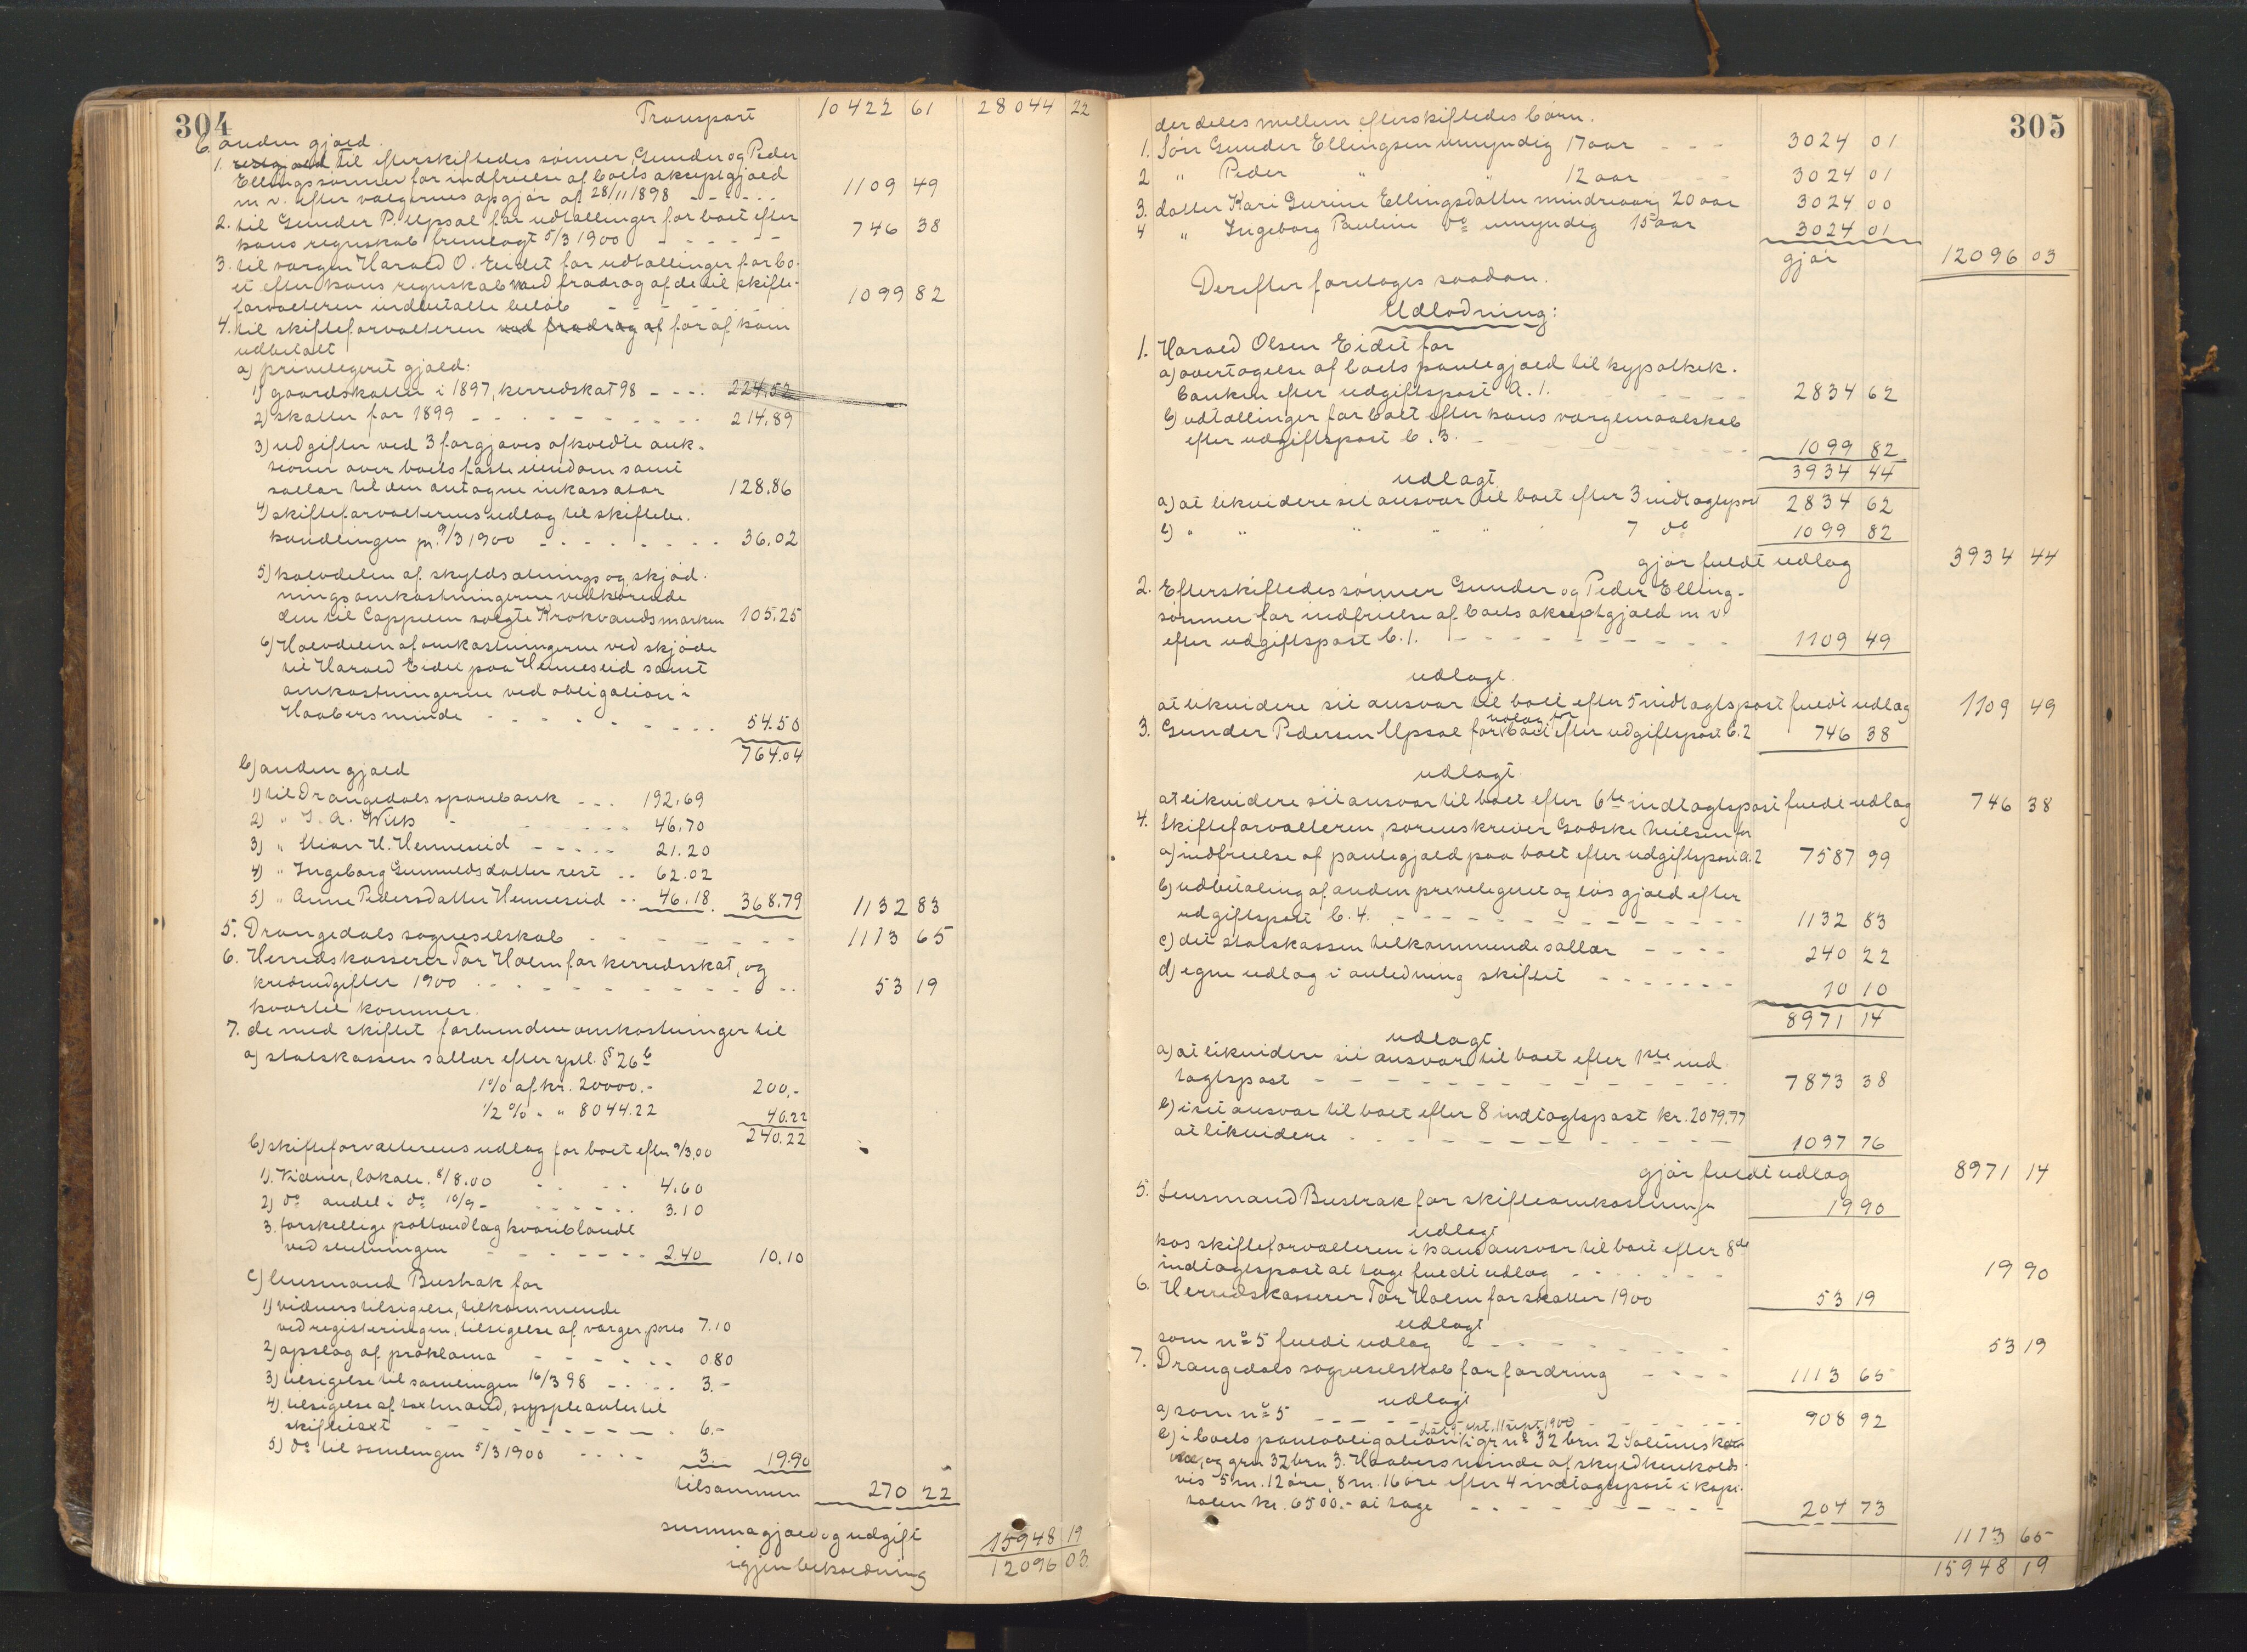 304
Transport 10422 61 28044 22
b. anden gjæld.
1. restgjæld til efterskiftedes sønner, Gunder og Peder
Ellingssønner for indfrielse af boets akseptgjæld
m. v. efter vægernes opgjør af 28/11 1898 - - - - 1109 49
2. til Gunder P. Upsal for udtællinger for boet efter
hans regnskab fremlagt 5/3 1900 - - - - - 746 38
3. til værgen Harald O. Eidet for udtællinger for bo-
et efter hans regnskab med fradrag af de til skifte-
forvalteren indbetalte beløb - - - - - - 1099 82
4. til skifteforvalteren ved fradrag af for af ham
udbetalt
a) privilegeret gjæld:
1) gaardskatter i 1897, herredskat 98 - - - - 224.52
2) skatter for 1899 - - - - - - - - 214.89
3) udgifter ved 3 forgjæves afholdte auk-
sioner over boets faste eiendom samt
sallær til den antagne inkassator 128.86
4) skifteforvalterens udlæg til skiftebe-
handlingen pr. 9/3 1900 - - - - - - - 36.02
5) halvdelen af skyldsætnings og skjød-
ningsomkostningerne vedkørende
den til Cappelen solgte Krokvandsmarken 105.25
6) Halvdelen af omkostningerne ved skjøde
til Harald Eidet paa Henneseid samt
omkostningerne ved obligation i
Haabersminde - - - - - - - - 54.50
764.04
b) anden gjæld
1) til Drangedals sparebank - - - 192.69
2) " J. A. Wiik - - - - - 46.70
3) " Stian H. Henneseid - - - - - 21.20
4) " Ingeborg Gunnuldsdatter rest - - 62.02
5) " Anne Pedersdatter Henneseid - - 46.18 368.79 1132 83
5. Drangedals sogneselskab - - - - - - - 1113 65
6. Herredskasserer Tor Holm for herredsskat, og
kredsudgifter 1900 - - - - - - - - - 53 19
hvortil kommer.
7. de med skiftet forbundne omkostninger til
a) statskassen sallær efter sptl. § 26 b
1% af kr. 20000.- 200.-
1/2 % " " 8044.22 40.22
240.22
b) skifteforvalterens udlæg for boet efter 9/3.00
1). Vidner, lokale. 8/8.00 - - - - 4.60
2) do andel i do 10/9 - - - - - - 3.10
3. forskellige postoudlæg hvoriblandt
ved slutningen - - - - - - 2.40 10.10
c) lensmand Bustrak for
1) vidners tilsigelse, tilkommende
ved registeringen, tilsigelse af værger, porto 7.10
2) opslag af proklama - - - - - - 0.80
3) tilsigelse til samlingen 16/3 98 - - - - 3.-
4). tilsigelse af taxtmænd, suppleanter til
skiftetaxt - - - - - - - - 6.-
5) do til samlingen 5/3 1900 - - - - 3.- 19.90
tilsammen 270 22
summa gjæld og udgift 15948 19
igjen beholdning 12096 03
305
der deles mellem efterskiftedes børn.
1. Søn Gunder Ellingsen umyndig 17 aar - - - 3024 01
2 " Peder " " 12 aar - - 3024 01
3. datter Kari Gurine Ellingsdatter mindreaarig 20 aar 3024 00
4 " Ingeborg Pauline do umyndig 15 aar 3024 01
gjør 12096 03
Derefter foretages saadan.
Udlodning:
1. Harald Olsen Eidet for
a) overtagelse af boets pantegjæld til hypothek-
banken efter udgiftspost a. 1. - - - - 2834 62
b) udtællinger for boet efter hans værgemaalskab
efter udgiftspost b. 3. - - - - - - - - 1099 82
3934 44
udlagt
a) at likvidere sit ansvar til boet efter 3 indtægtspost 2834 62
b) " " " " " 7 do 1099 82
gjør fuldt udlæg 3934 44
2. Efterskiftedes sønner Gunder og Peder Elling-
sønner for indfrielse af boets akseptgjæld m v
efter udgiftspost b. 1. - - - - - - - - - 1109 49
udlagt.
at likvidere sit ansvar til boet efter 5 indtægtspost fuldt udlæg 1109 49
3. Gunder Pedersen Upsal for udlæg for boet efter udgiftspost b. 2 746 38
udlagt.
at likvidere sit ansvar til boet efter 6te indtægtspost fuldt udlæg 746 38
4. Skifteforvalteren, sorenskriver Godske Nielsen for
a) indfrielse af pantegjæld paa boet efter udgiftspost a. 2 7587 99
b) udbetaling af anden previlegeret og løs gjæld efter
udgiftspost b. 4. - - - - - - - - - - - 1132 83
c) det statskassen tilkommende sallær - - - - 240 22
d) egne udlæg i anledning skiftet - - - - - - - 10 10
8971 14
udlagt
a) at likvidere sit ansvar til boet efter 1ste ind-
tægtspost - - - - - - - - - - - - - 7873 38
b) i sit ansvar til boet efter 8 indtægtspost kr. 2079.77
at likvidere - - - - - - - - - - - 1097 76
gjør fuldt udlæg 8971 14
5. Lensmand Bustrak for skifteomkostninger 19 90
udlagt
hos skifteforvalteren i hans ansvar til boet efter 8de
indtægtspost at tage fuldt udlæg - - - - - - 19 90
6. Herredskasserer Tor Holm for skatter 1900 53 19
udlagt
som no 5 fuldt udlæg - - - - - - - - 53 19
7. Drangedals sogneselskab for fordring - - - - 1113 65
udlagt
a) som no 5 - - - - - - - - - - 908 92
dat. 5 sept. 11 sept. 1900
b) i boets pantobligation i gr no 32 brn 2
og grn 32 brn 3. Haabersminde af skyld henholds-
vis 5 m. 12 øre, 8 m. 16 øre efter 4 indtægtspost i kapi-
talen kr. 6500.- at tage - - - - - - - - 204 73
1113 65
15948 19